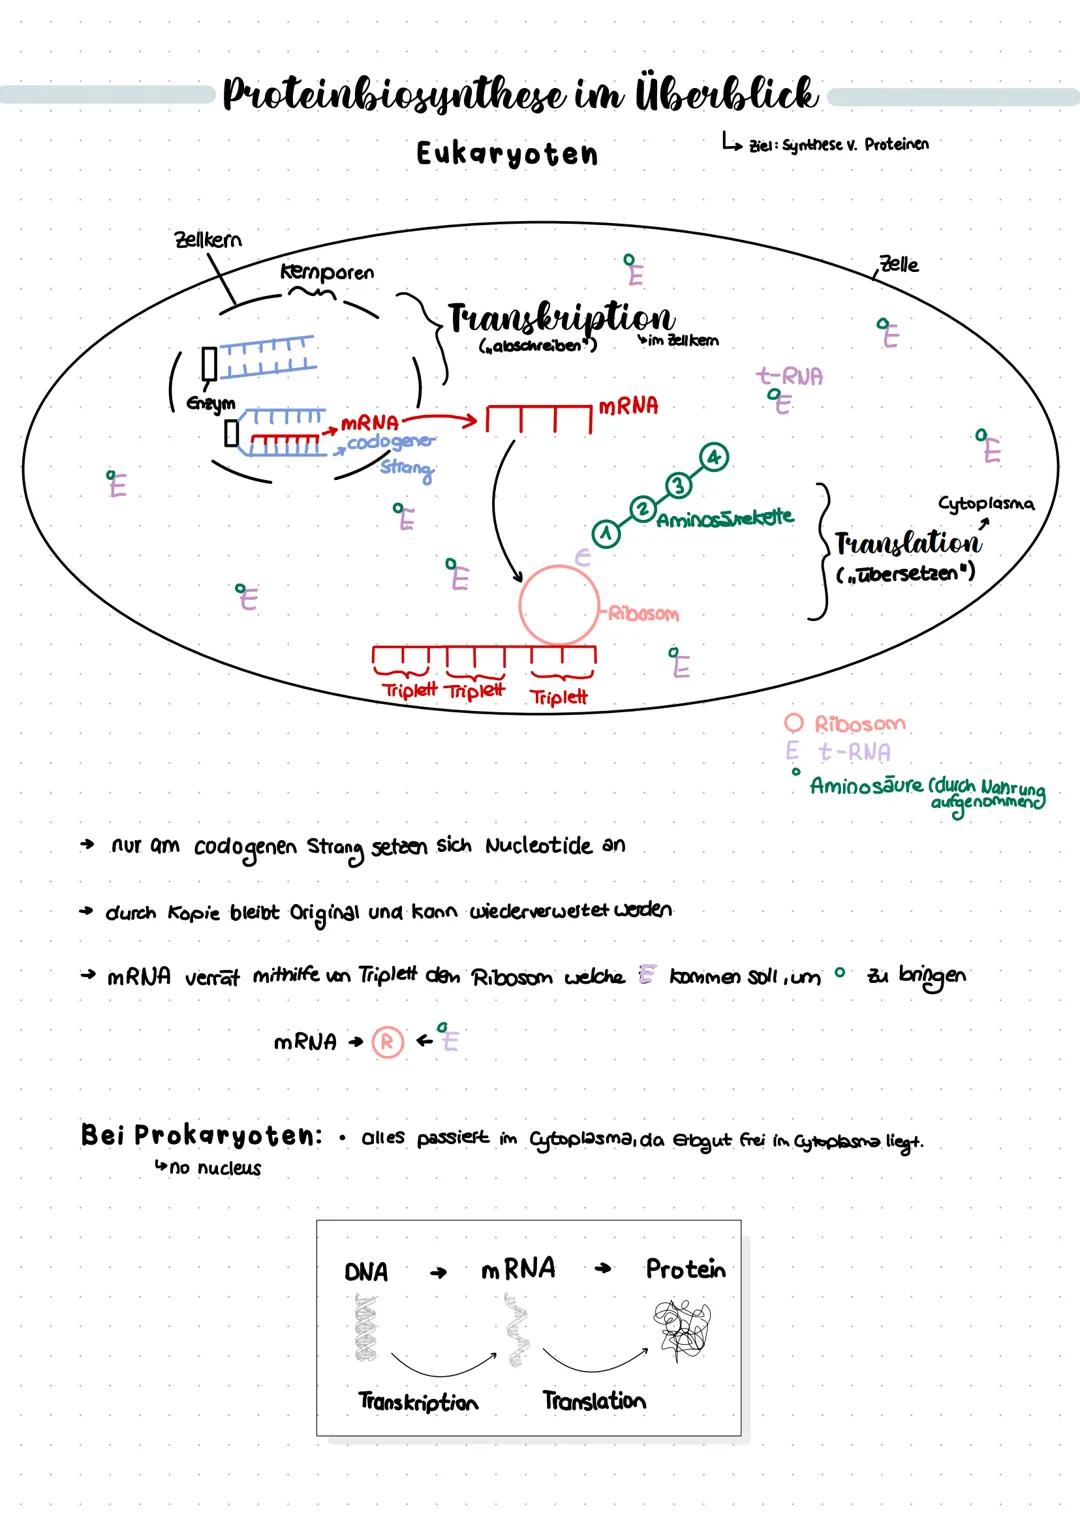 Proteinbiosynthese im Überblick
Eukaryoten
↳ Ziel: Synthese v. Proteinen
Zellkern
Kernporen
Zelle
Transkription
("abschreiben")
↳ im Zellkern
Enzym
mRNA
codogener
Strang
mRNA
t-RNA
1
2
3
4
Aminosäurekette
Cytoplasma
Translation
("übersetzen")
Ribosom
Triplett Triplett Triplett
O Ribosom
E t-RNA
Aminosäure (durch Nahrung
aufgenommen)
→ nur am codogenen Strang setzen sich Nucleotide an
→ durch Kopie bleibt Original und kann wiederverwertet werden
→ mRNA verrät mithilfe von Triplett dem Ribosom welche E kommen soll, um o zu bringen
mRNA → R ← E
Bei Prokaryoten: • alles passiert im Cytoplasma, da Erbgut frei im Cytoplasma liegt.
↳ no nucleus
DNA → mRNA → Protein
Transkription Translation